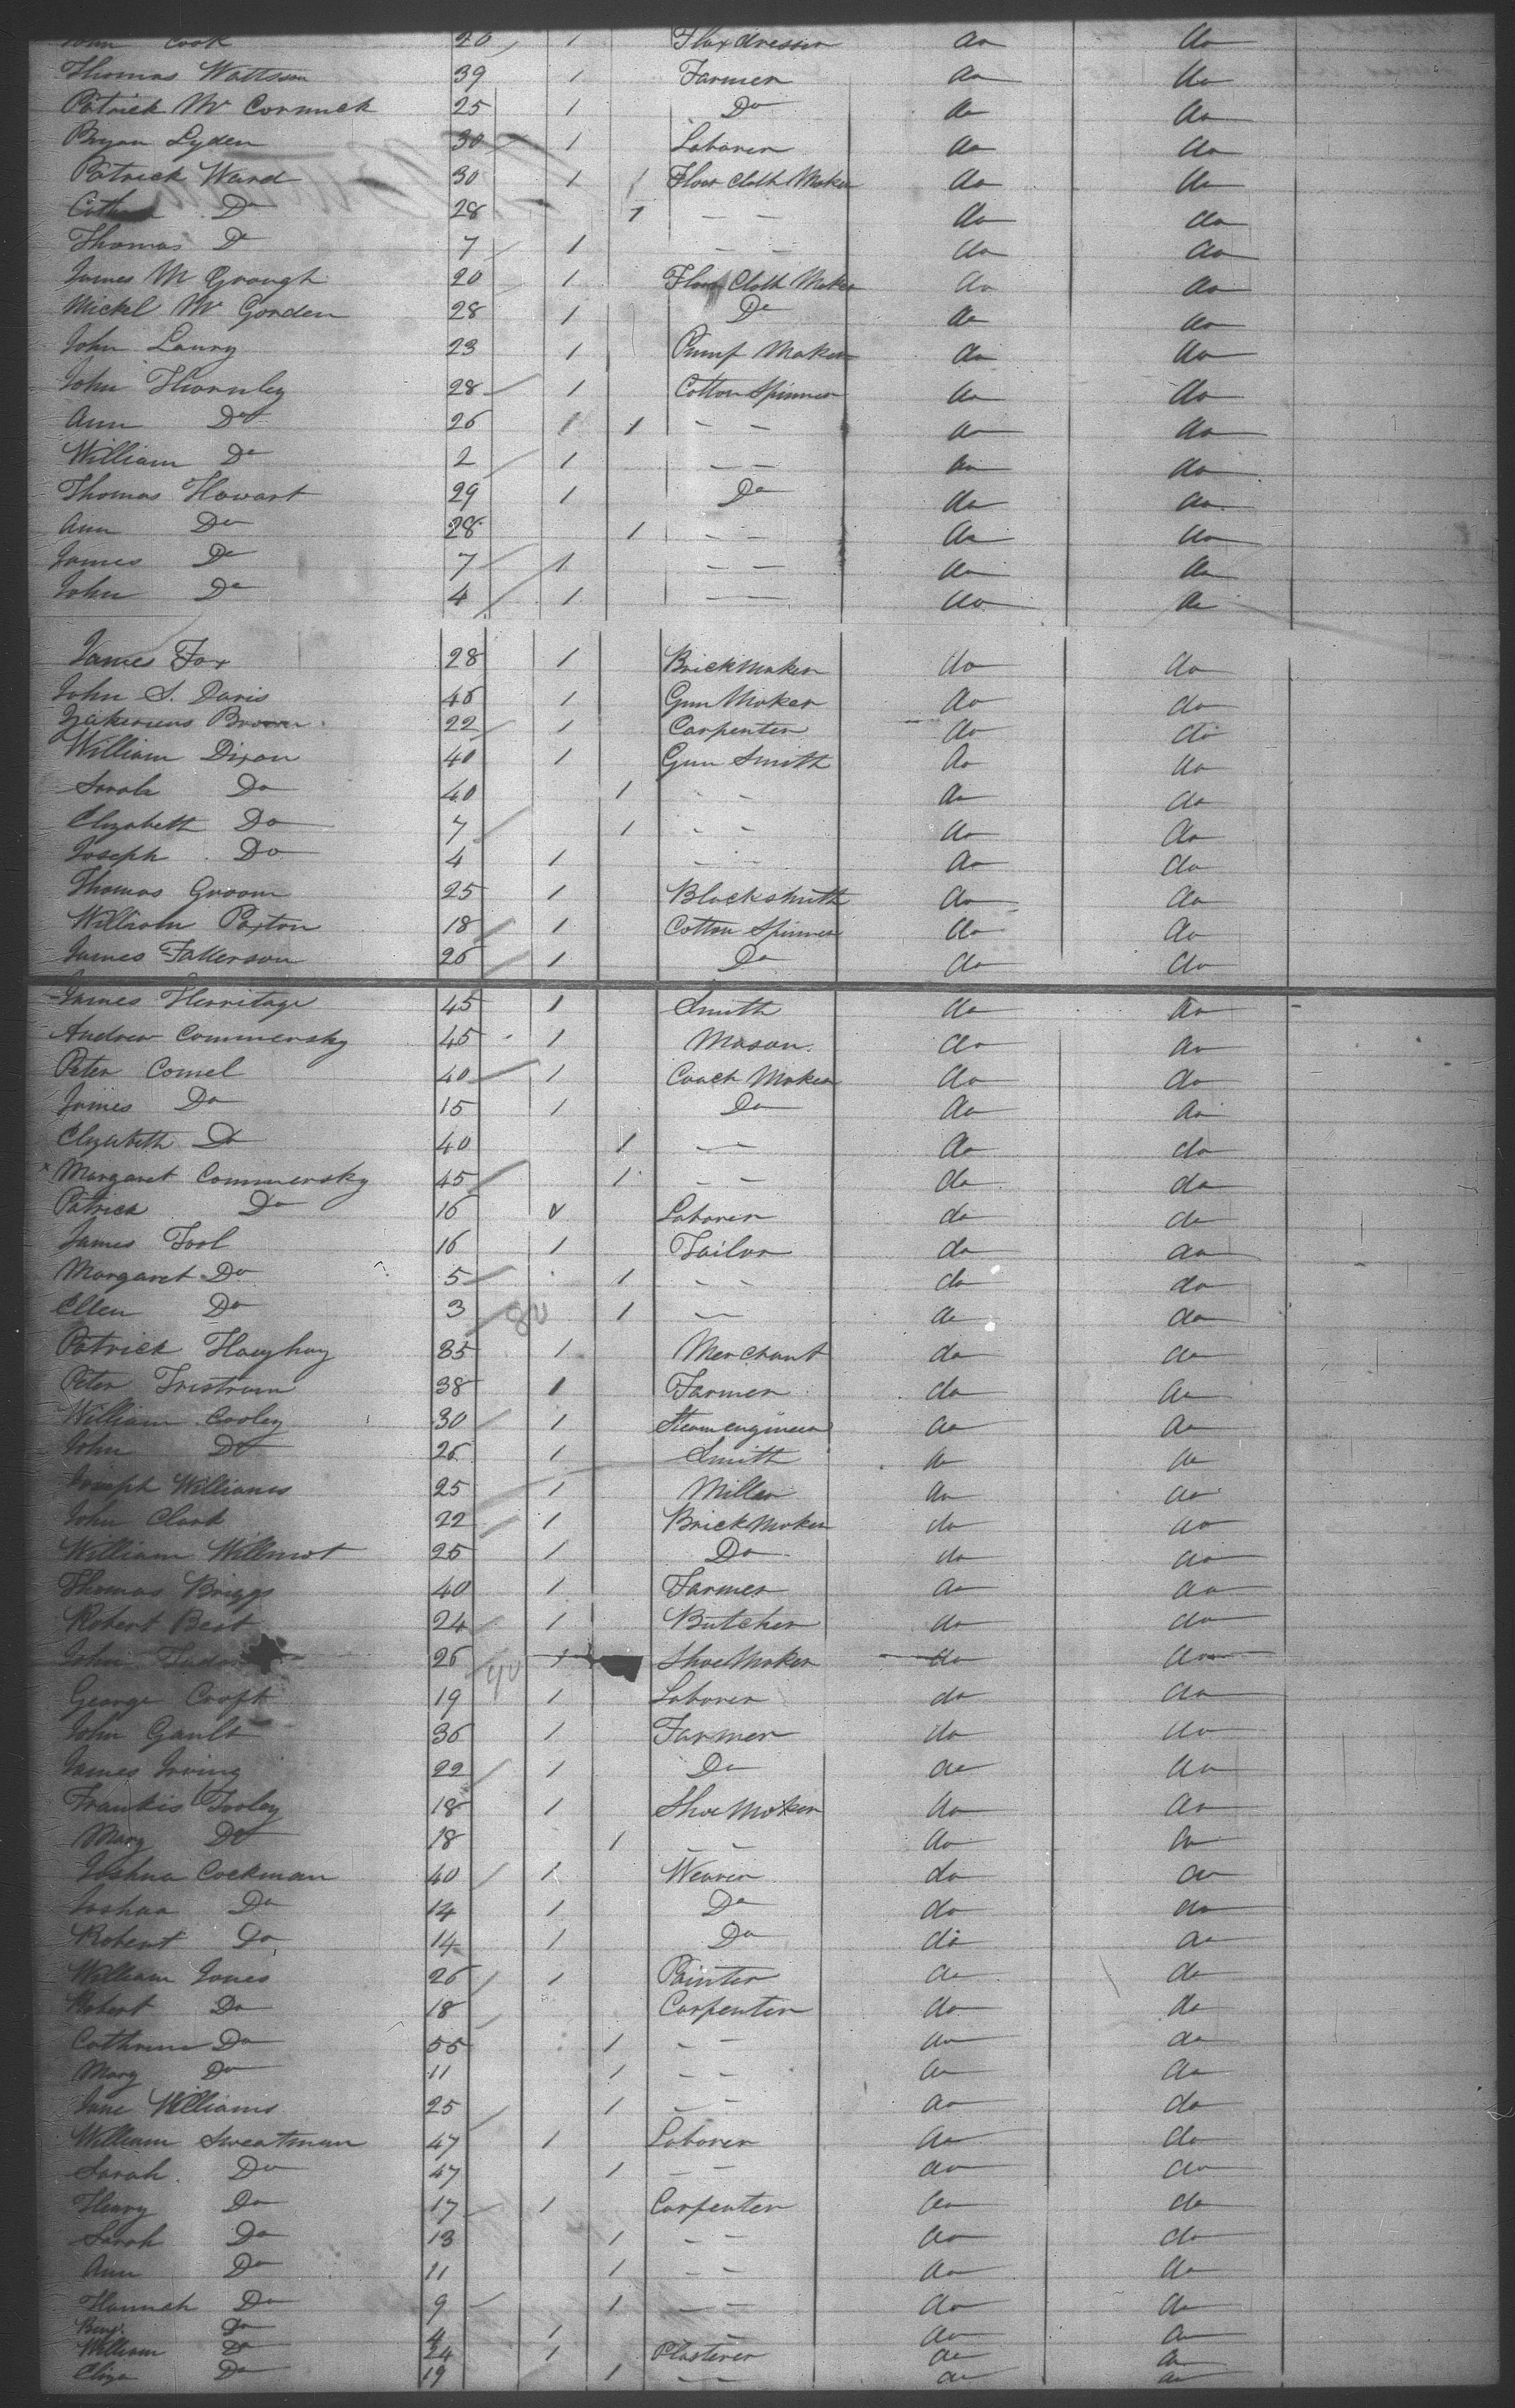 John Cook 26 1 Flaxdresser do do
Thomas Wattson 39 1 Farmer do do
Patrick Mc Cormick 25 1 Do do do
Bryan Lyden 30 1 Laborer do do
Patrick Ward 30 1 Floor Cloth Maker do do
Do 28 1 — — do do
Thomas Do 7 1 — — do do
James Mc Grough 20 1 Floor Cloth Maker do do
Mickl Mc Gorden 28 1 Do do do
John Laury 23 1 Pump Maker do do
John Thornley 28 1 Cotton Spinner do do
Ann Do 26 1 1 — — do do
William Do 2 1 — — do do
Thomas Howart 29 1 Do do do
Ann Do 28 1 — — do do
James Do 7 1 — — do do
John Do 4 1 — — do do
James Fox 28 1 Brickmaker do do
John S. Davis 46 1 Gun Maker do do
Brown 22 1 Carpenter do do
William Dixon 40 1 Gun Smith do do
Sarah Do 40 1 — — do do
Elizabeth Do 7 1 — — do do
Joseph Do 4 1 — — do do
Thomas Groom 25 1 Blacksmith do do
William Paxton 18 1 Cotton Spinner do do
James Fatterson 26 1 Do do do
James Herritage 45 1 Smith do do
Andrew Commersky 45 1 Mason do do
Peter Comel 40 1 Coach Maker do do
James Do 15 1 Do do do
Elizabeth Do 40 1 — — do do
x Margaret Commersky 45 1 — — do do
Patrick Do 16 Laborer do do
James Tool 16 1 Tailor do do
Margaret Do 5 1 — — do do
Ellen Do 3 80 1 — — do do
Patrick 35 1 Merchant do do
Peter Tristrum 38 1 Farmer do do
William Cooley 30 1 Steamengineer do do
John Do 26 1 Smith do do
Joseph Williams 25 1 Miller do do
John Clark 22 1 Brick Maker do do
William Willmot 25 1 Do do do
Thomas Briggs 40 1 Farmer do do
Robert Best 24 1 Butcher do do
John 26 90 1 Shoe Maker do do
George Croft 19 1 Laborer do do
John Gault 36 1 Farmer do do
James Irving 22 1 Do do do
Frankis Tooley 18 1 Shoe Maker do do
Mary Do 18 1 — — do do
Joshua Cockman 40 1 Weaver do do
Joshua Do 14 1 Do do do
Robert Do 14 1 Do do do
William Jones 26 1 Painter do do
Robert Do 18 1 Carpenter do do
Cathrine Do 55 1 — — do do
Mary Do 11 1 — — do do
Jane Williams 25 1 — — do do
William Sweatman 47 1 Laborer do do
Sarah Do 47 1 — — do do
Henry Do 17 1 Carpenter do do
Sarah Do 13 1 — — do do
Ann Do 11 1 — — do do
Hannah Do 9 1 — — do do
Benj. Do 4 1 — do do
William Do 24 1 Plasterer do do
Eliza Do 19 1 — — do do